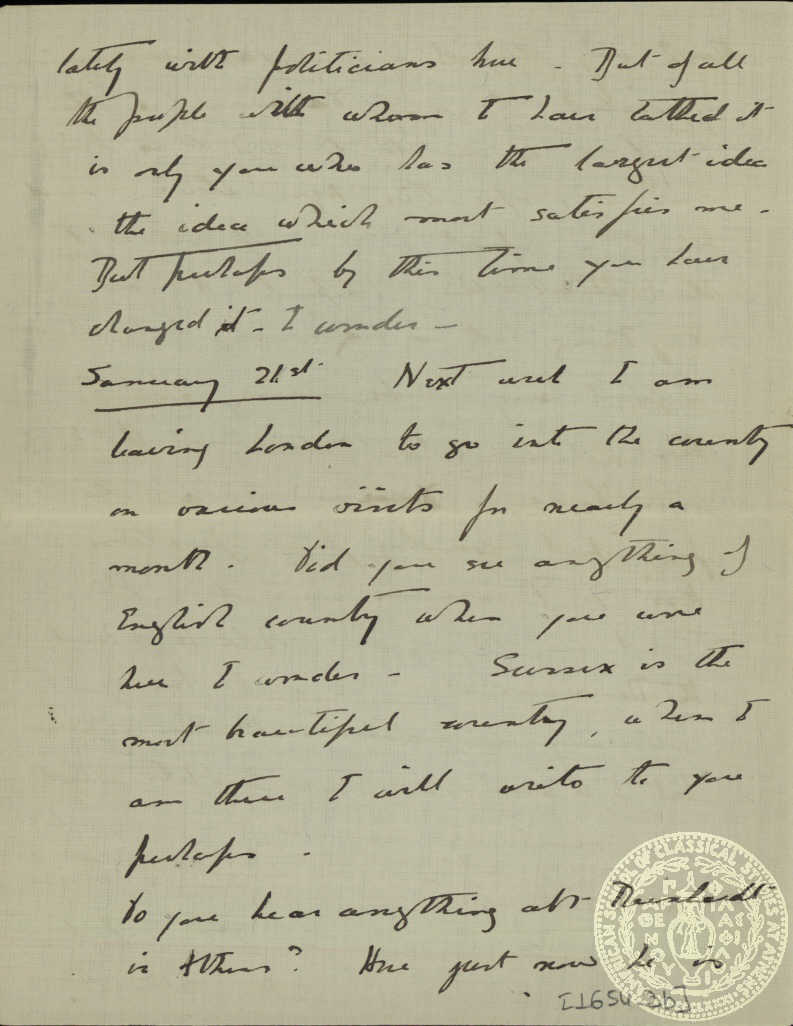 lately with politicians here - But of all
the people with whom I have talked it
is only you who has the largest idea
the idea which most satisfies me -
But perhaps by this time you have
changed it - I wonder -
January 21st. Next week I am
leaving London to go into the country
on various visits for nearly a
month. Did you see anything of
English country when you were
here I wonder - Sussex is the
most beautiful country, when I
am there I will write to you
perhaps -
Do you hear anything abt Reinhardt
in Athens? Here just now he is
[1654_3b]
AMERICAN SCHOOL OF CLASSICAL STUDIES AT ATHENS
ΠΑΡ
ΘΕ